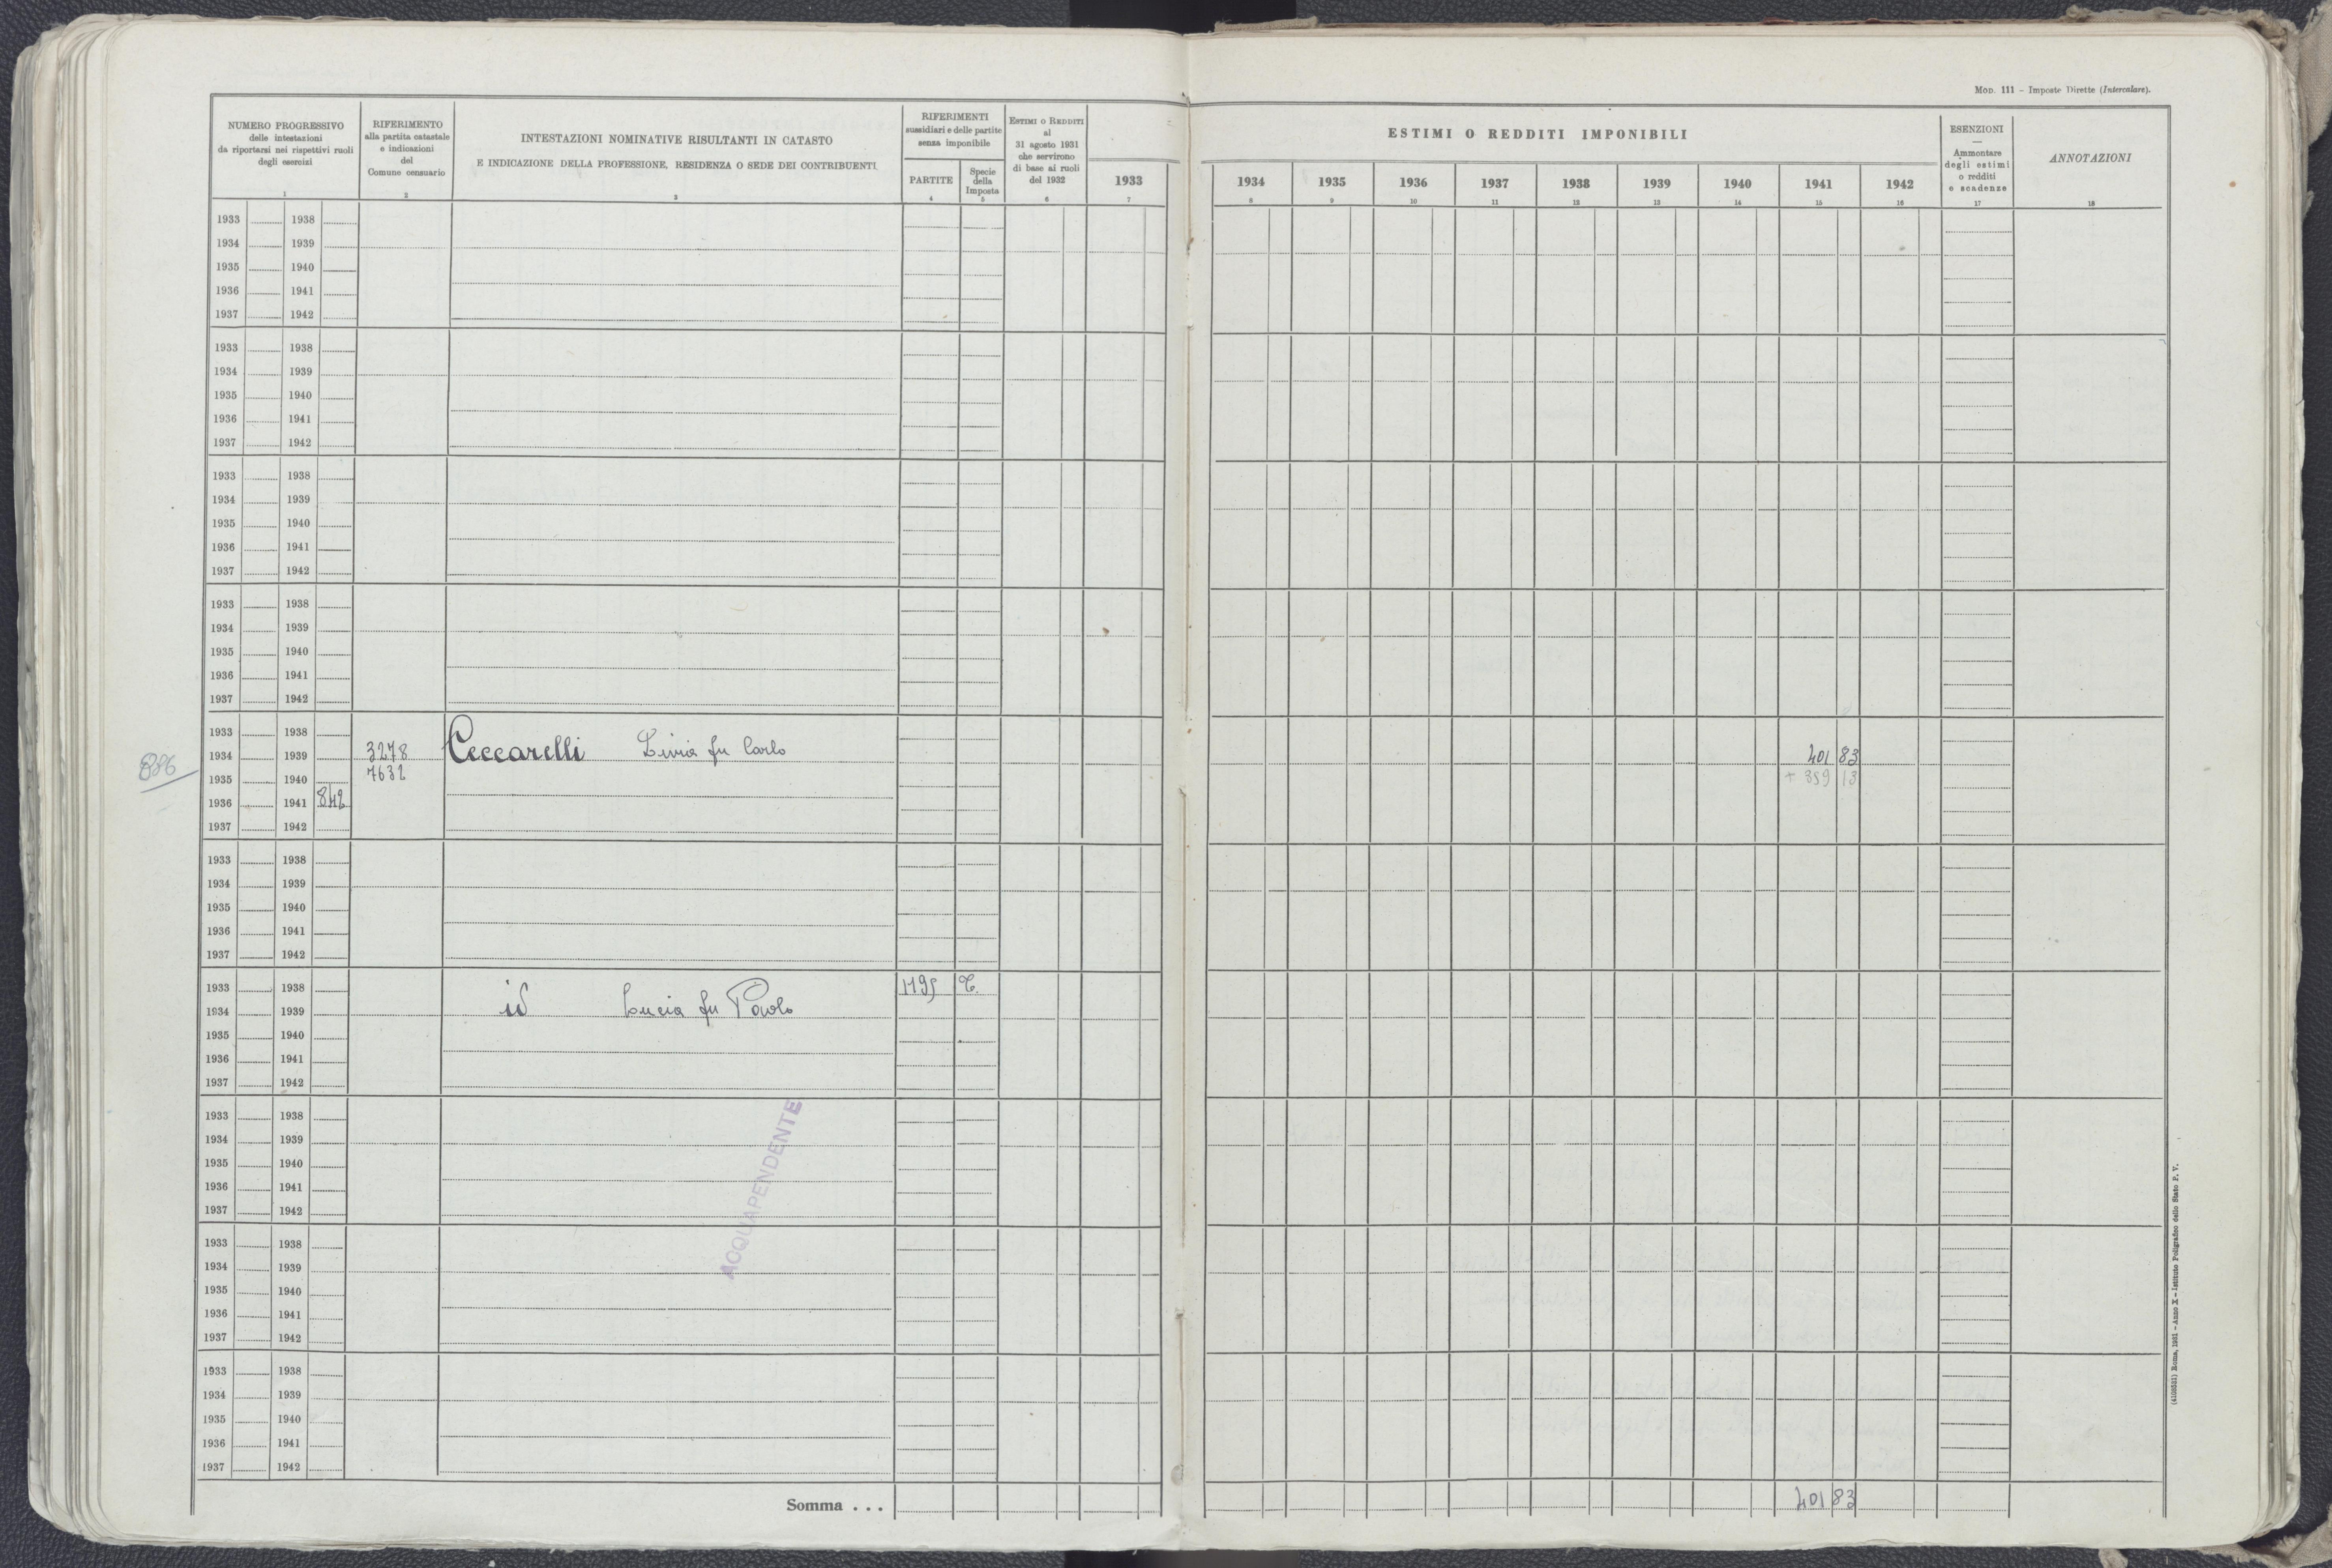 Mod. 111 - Imposte Dirette (Intercalare).
NUMERO PROGRESSIVO
delle intestazioni
da riportarsi nei rispettivi ruoli
degli esercizi
1
RIFERIMENTO
alla partita catastale
e indicazioni
del
Comune censuario
2
INTESTAZIONI NOMINATIVE RISULTANTI IN CATASTO
E INDICAZIONE DELLA PROFESSIONE, RESIDENZA O SEDE DEI CONTRIBUENTI
3
RIFERIMENTI
sussidiari e delle partite
senza imponibile
PARTITE
4
Specie
della
Imposta
5
Estimi o Redditi
al
31 agosto 1931
che servirono
di base ai ruoli
del 1932
6
1933
7
ESTIMI O REDDITI IMPONIBILI
1934 1935 1936 1937 1938 1939 1940 1941 1942
8 9 10 11 12 13 14 15 16
ESENZIONI
—
Ammontare
degli estimi
o redditi
e scadenze
17
ANNOTAZIONI
18
1933 1938
1934 1939
1935 1940
1936 1941
1937 1942
1933 1938
1934 1939
1935 1940
1936 1941
1937 1942
1933 1938
1934 1939
1935 1940
1936 1941
1937 1942
1933 1938
1934 1939
1935 1940
1936 1941
1937 1942
1933 1938
1934 1939 3278 Ceccarelli Livia fu Carlo 401 83
1935 1940 7632 + 359 13
1936 1941 842
1937 1942
1933 1938
1934 1939
1935 1940
1936 1941
1937 1942
1933 1938 1195
1934 1939 id Lucia fu Paolo
1935 1940
1936 1941
1937 1942
1933 1938
1934 1939
1935 1940
1936 1941
1937 1942
ACQUAPENDENTE
1933 1938
1934 1939
1935 1940
1936 1941
1937 1942
1933 1938
1934 1939
1935 1940
1936 1941
1937 1942
Somma . . . 401 83
(4108521) Roma, 1931 - Anno X - Istituto Poligrafico dello Stato P. V.